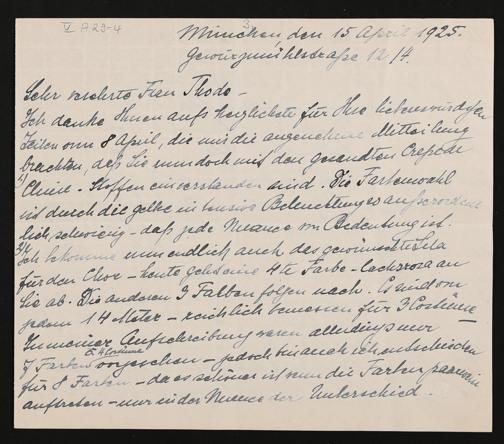 V A 29-4
München, den 15 April 1925.
Gewürzmühlstraße 12/4.
Sehr verehrte Frau Thode –
Ich danke Ihnen aufs herzlichste für Ihre liebenswürdigen
Zeilen vom 8 April, die mir die angenehme Mitteilung
brachten, daß Sie nun doch mit den gesandten Crepe de
Chine - Stoffen einverstanden sind. Die Farbenwahl
ist durch die gelbe intensive Beleuchtung so außerordent
lich schwierig – daß jede Nuance von Bedeutung ist.
Ich bekomme nun endlich auch das gewünschte Lila
für den Chor – heute geht eine 4te Farbe - lachsrosa an
Sie ab. Die anderen 3 Farben folgen nach. Es sind von
jedem 14 Meter – reichlich bemessen für 3 Kostüme –
In meiner Aufschreibung waren allerdings nur
7 Farben vorgesehen – jedoch bin auch ich entschieden
für 8 Farben – da es schöner ist wenn die Farben paarweise
auftreten – nur in der Nuance der Unterschied.